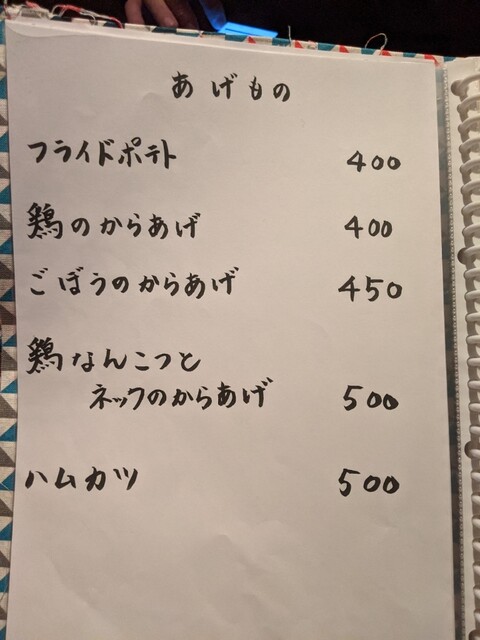 あげもの
フライドポテト 400
鶏のからあげ 400
ごぼうのからあげ 450
鶏なんこつと
ネックのからあげ 500
ハムカツ 500